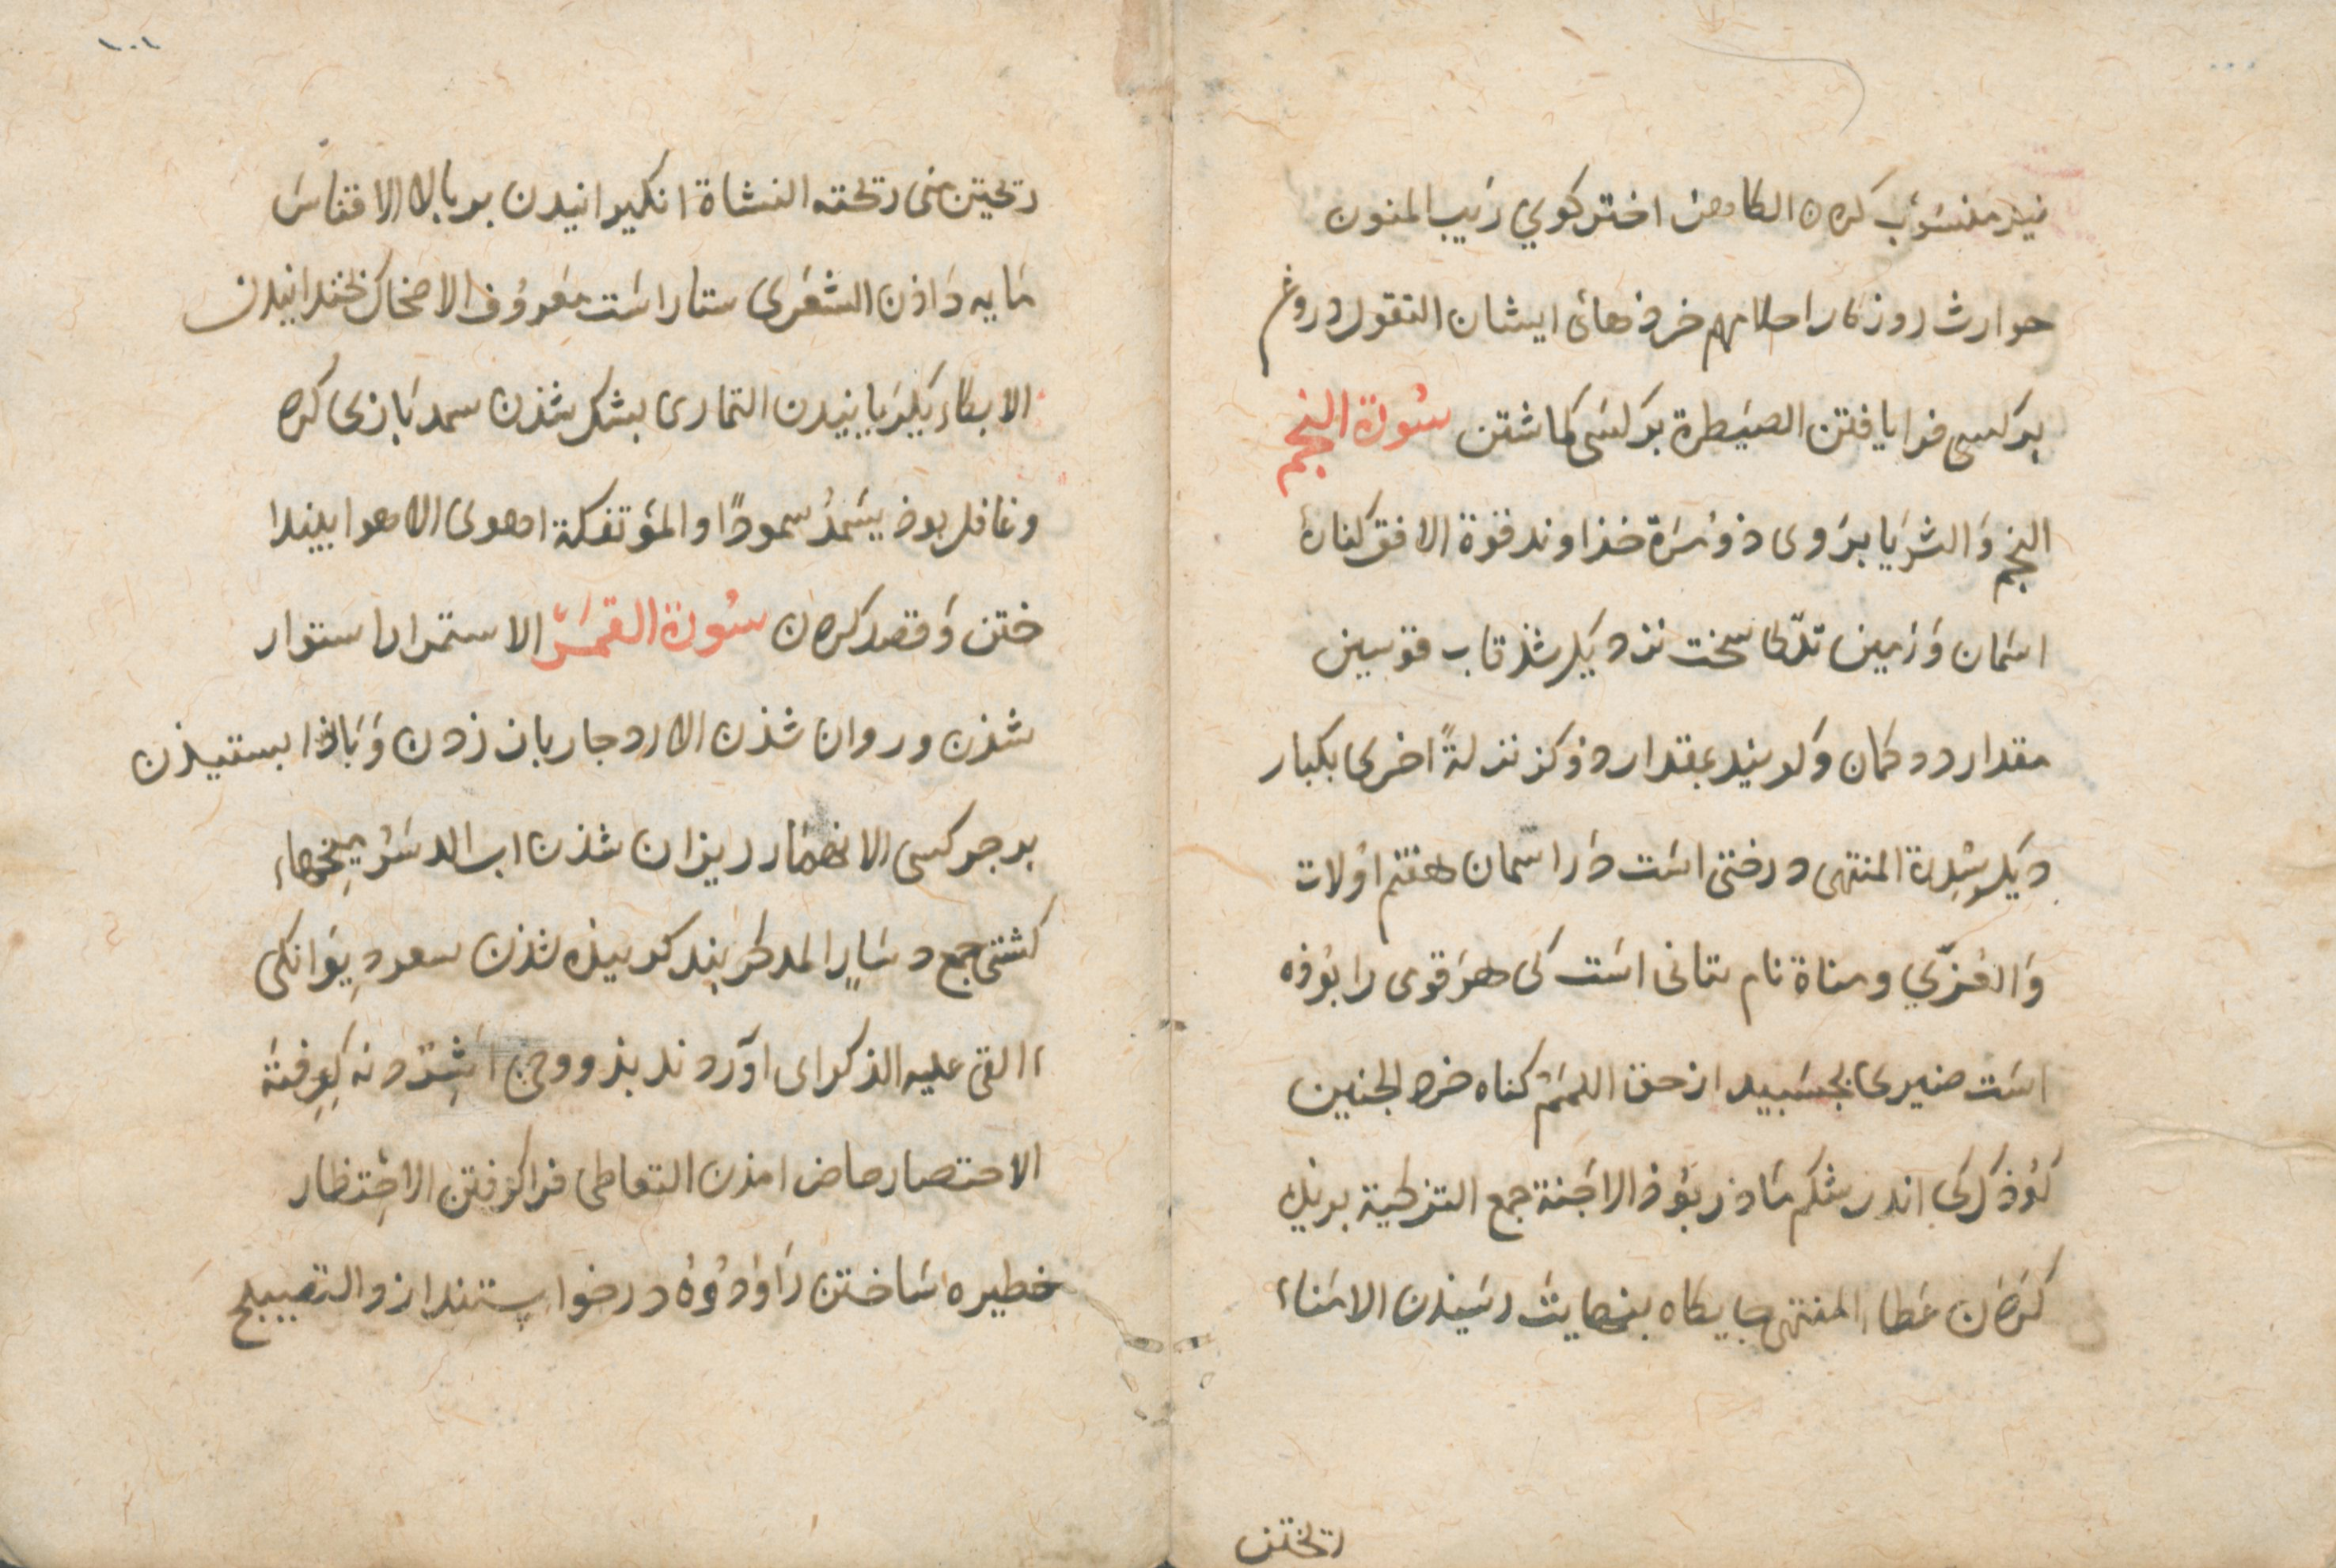 نیز منسوب کردن الکاهن اختر کوي رَیب المنون
حوارث روزکار احلامهم خرذهائ ایشان التقول دروغ
برکسی فرا یافتن الصیَطرة برکسَی کماشتن سُورة النجم
النجم وَالثریا بَروی ذو مِرّة خذاوند قوة الافق کنارهٔ
اسَمان وَزمین تدلّی سخت نزدیک شذ قاب قوسین
مقدار دو کمان وَکویند بمقدار دو کز نزلةً اخری یکبار
دیکر سِدرة المنتهی درختی اسَت دَر اسَمان هفتم اوُلات
وَالعُزّي ومناة نام بتانی اسَت کی هر قومی را بوُذه
اسَت ضیزی بجسَبید از حق اللمَمَ کناه خرد الجنین
کوُذک کی اندر شکم مَاذر بوُذ الاجَنة جمع التزکیة بریک
کرَدن عَطاء المنتهی جایکاه بنهایت رسَیذن الامَناء
ریختن
۱۰۱
ریختن منی ریخته النشاة انکیزانیدن بر بالا الاقناس
مَایه دَاذن الشعَری ستاره اسَت معَروُف الاضحاک بخندانیدن
الابکاء بکریَانیدن التماری بشک شذن سمد بَازی کرد
وغافل بوذ یسَمدُ سموداً والمؤتفکة اهوی الاهوا بینذا
ختن وَقصد کردن سُورة القمَر الاستمرار استوار
شذن وروان شذن الازدجار باز زدن وَبَاز ابستیذن
بر جر کسی الانهمَار ریزان شذن اب الدسَرُ میخهاء
کشتی جمع دسَارٍ المدکر پند کیرنذه شذن سعر دِیوَانکی
االقی علیه الذکر ای اوَردند بذو وحی اشِرّ دنه کِرفته
الاحتصار حاضر امذن التعاطی فرا کرفتن الاحِتظار
خطیره سَاختن رَاوَدوُهُ درخواستند ازو التصبیح